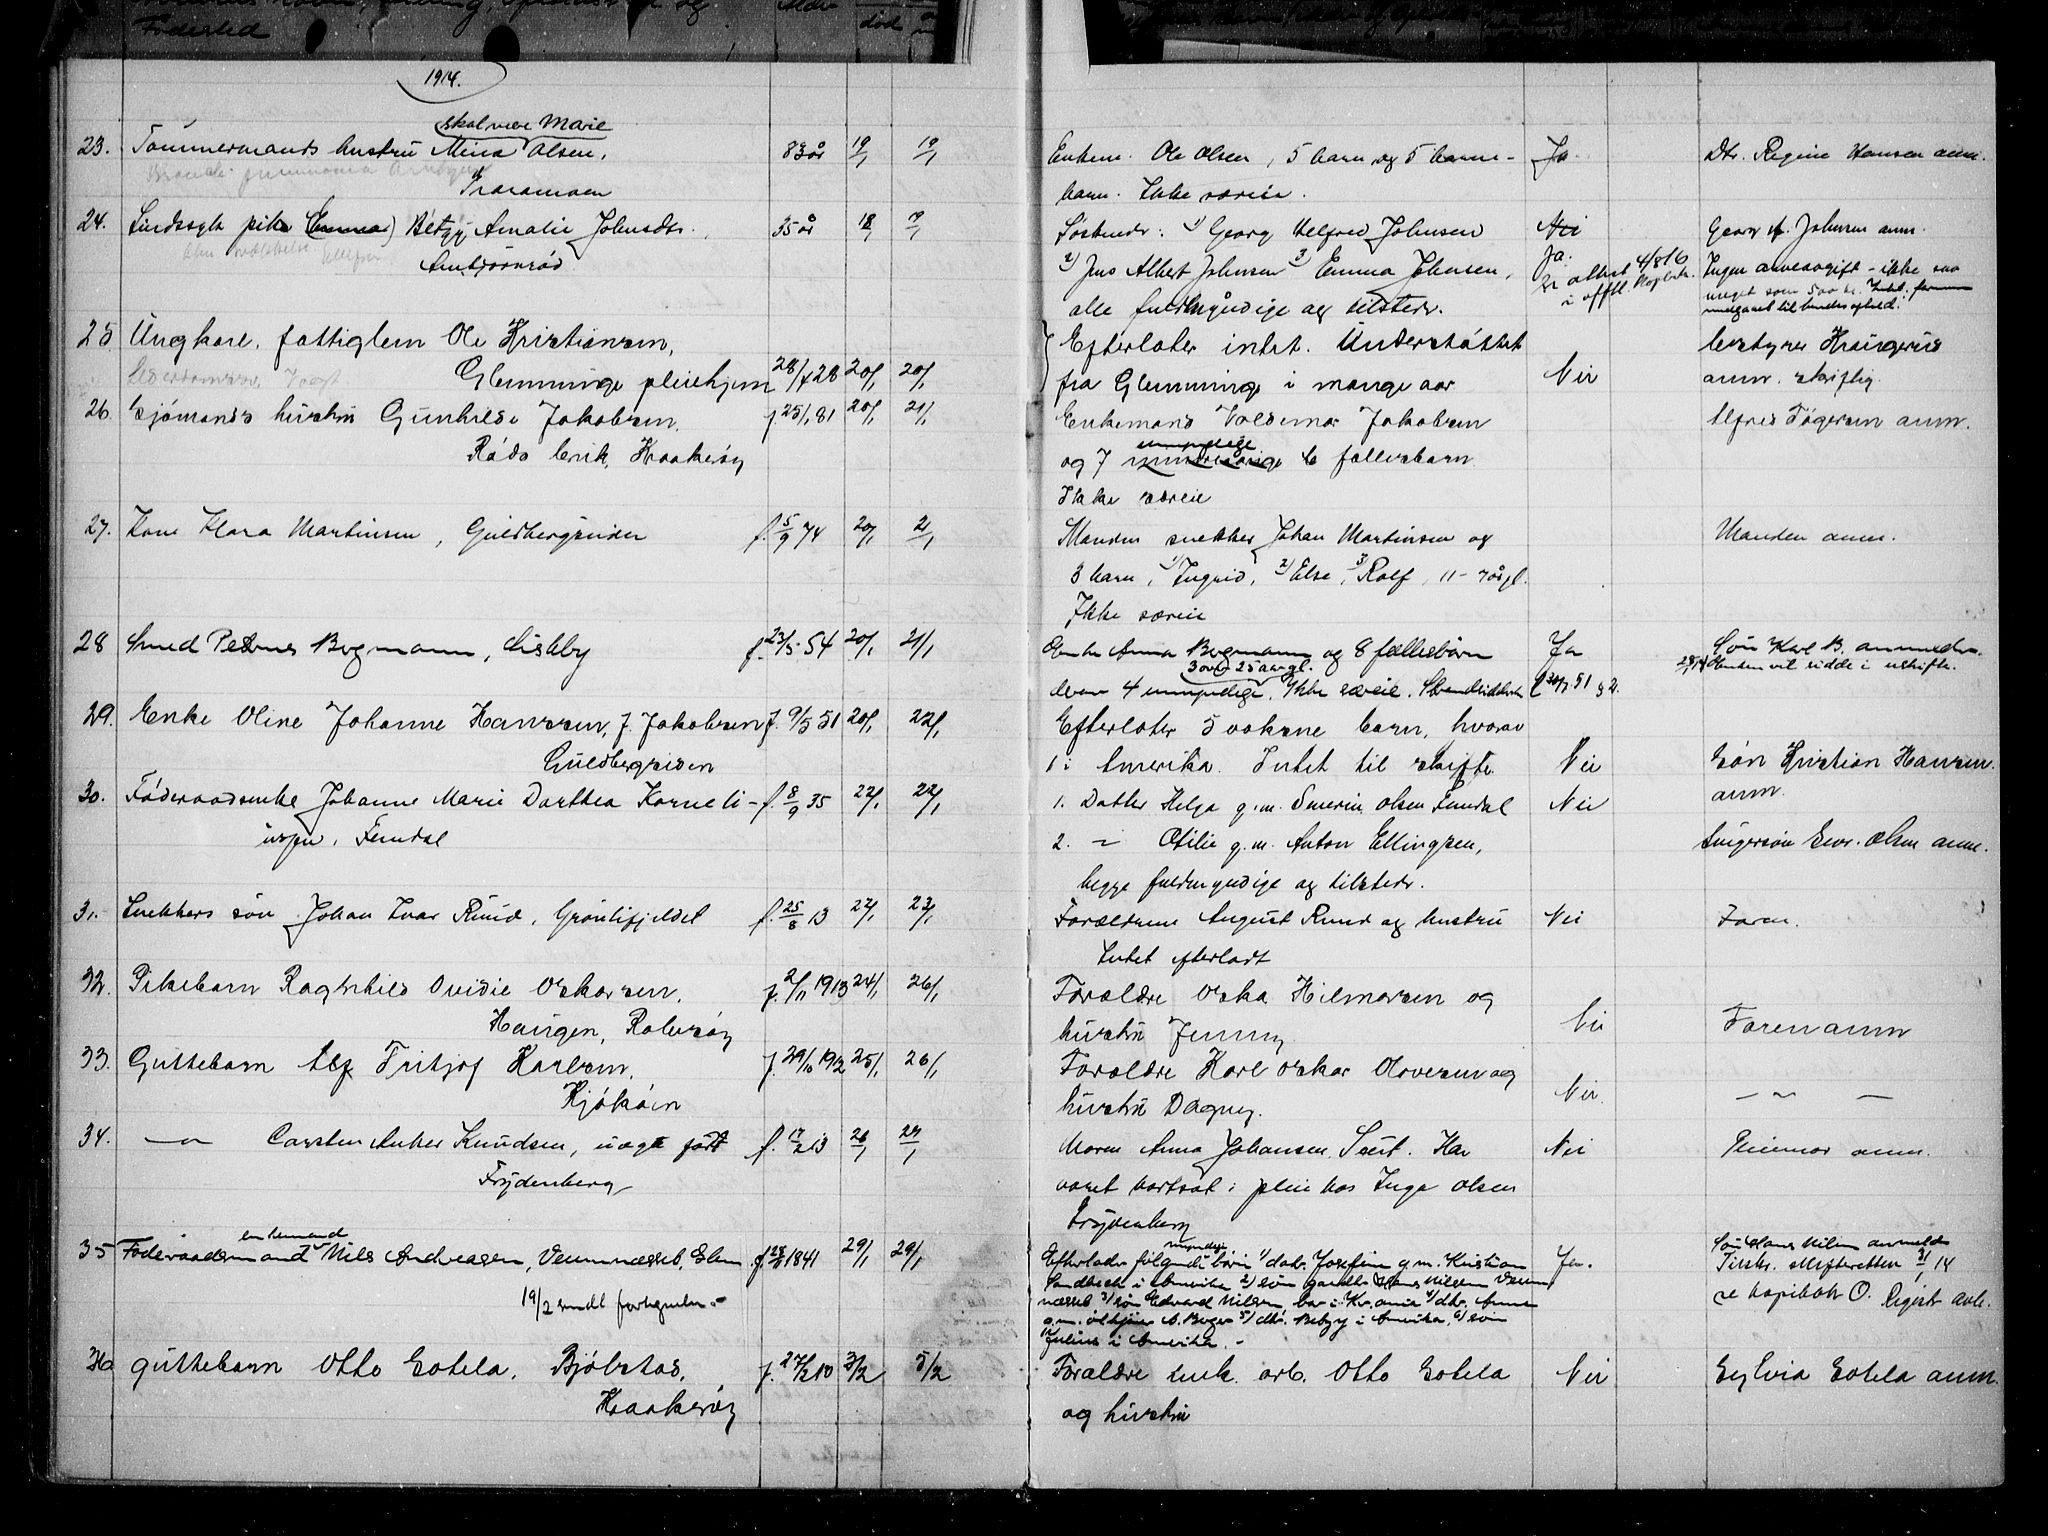 Fødested
død
1914.
skal være Marie
23. Tømmermands hustru Mina Olsen, 83 år 19/1 19/1
Traramoen
24. Sindssyk pike (Emma) Betzy Amalie Johnsdtr. 35 år 18/1 19/1
Ambjørnrød
25. Ungkarl, fattiglem Ole Kristiansen,
Glemminge pleiehjem 28/7 28 20/1 20/1
26. Sjømands hustru Gunhilde Jakobsen f. 25/1 81 20/1 21/1
Røds brik, Kraakerøy
27. Kone Klara Martinsen, Guldbergsiden f. 5/9 74 20/1 21/1
28 Smed Petrus Bogmann, Lisleby f. 23/5 54 20/1 21/1
29. Enke Oline Johanne Hansen, f. Jakobsen f. 9/5 51 20/1 22/1
Guldbergsiden
30. Føderaadsenke Johanne Marie Dorthea Korneli- f. 8/9 35 22/1 22/1
uspn, Femdal
31. Snekkers søn Johan Ivar Ruud, Grønlifjeldet f. 25/8 13 22/1 23/1
32. Pikebarn Raghnhild Ovidie Oskarsen, f. 2/11 1913 24/1 26/1
Haugen, Rolvsøy
33. Guttebarn Alf Fritjof Karlsen, f. 29/10 1912 25/1 26/1
Kjøkøen
34. —"— Carsten Anker Knudsen, uægte født f. 17/2 13 26/1 27/1
Frydenberg
enkemand
35 Føderaadsmand Nils Andreasen, Veumnæsset, Glem. f. 1841 29/1 29/1
19/2 sendt fortegnelse
36 guttebarn Otto Gotela, Bjølstad, f. 27/2 10 3/2 5/2
Kraakerøy
Enkem. Ole Olsen, 5 barn og 5 barne- Ja. Dtr. Regine Hansen anm.
barn. Ikke særeie.
Søskende: 1) Georg Helfred Johnsen Nei Georg A. Johnsen anm.
2) Jens Albert Johnsen 3) Emma Johnsen, Ja. Ingen arveavgift - ikke saa
alle fuldmyndige og tilstede. meget som 500 kr.
Efterlater intet. Understøttet Bestyrer Haugerud
fra Glemminge i mange aar Nei anm. skriftlig.
Enkemand Valdemar Jakobsen Alfred Tøgersen anm.
umyndige
og 7 mindreårige fællesbarn
Ikke særeie
Manden snekker Johan Martinsen og Manden anm.
3 barn, 1) Ingrid, 2) Else, 3) Rolf, 11 - 7 år gl.
Ikke særeie
Enke Anna Bogmann og 8 fællesbørn Ja Søn Karl B. anmelder.
3 over 25 aar gl. Enken vil sidde i uskifte.
derav 4 umyndige. Ikke særeie.
Efterlater 5 voksne barn, hvorav
1 i Amerika. Intet til skifte. Nei Søn Kristian Hansen
anm.
1. Datter Helga g.m. Severin Olsen Femdal Nei
2. —"— Otilie g.m. Anton Ellingsen, Svigersøn Sev. Olsen anm.
begge fuldmyndige og tilstede.
Forældrene August Ruud og hustru Nei Faren.
Intet efterladt
Forældre Oska Hilmarsen og
hustru Jenny Nei Faren anm
Forældre Karl Oskar Olversen og
hustru Dagny. Nei. — " —
Moren Anna Johansen, Saut. Har Nei Pleiemor anm.
været bortsat i pleie hos Inga Olsen
Frydenberg
myndige Søn Hans Nilsen anmelder
Efterlader følgende børn 1) datr. Josefine g.m. Kristian Ja. Tilskr. skifteretten 31/1 14
Sandbeck i Amerika 2) søn gaardbr. Hans Nilsen Veum-
næsset 3) søn Edvard Nilsen, bor i Kr.ania 4) dtr. Anna
g.m. A. Boger 5) dtr. Betzy i Amerika, 6) søn
Julius i Amerika. -
Forældre murk. arb. Otto Gotela Nei Sylvia Gotela anm.
og hustru